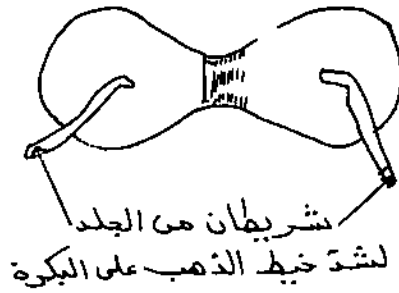 شريطان من الجلد
لشدّ خيط الذهب على البكرة